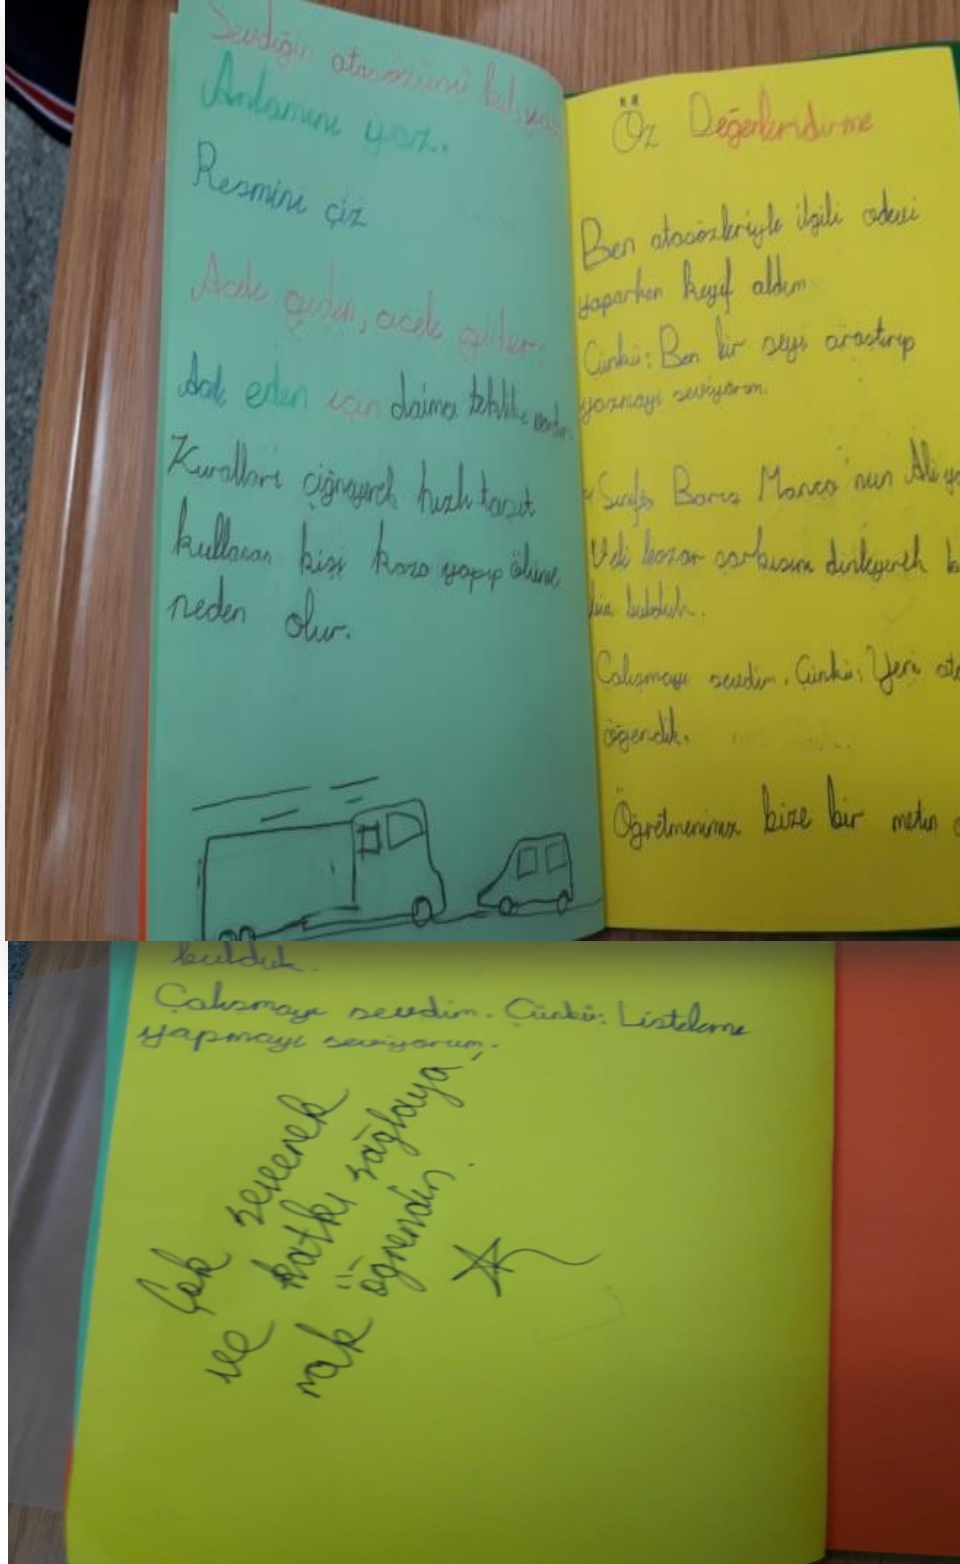 Sevdiğin atasözünü bul, yaz.
Anlamını yaz.
Resmini çiz
Acele giden, ecele gider.
Acele eden için daima tehlike vardır.
Kuralları çiğneyerek hızlı taşıt
kullanan kişi kaza yapıp ölüme
neden olur.
Öz Değerlendirme
Ben atasözleriyle ilgili ödevi
yaparken keyif aldım.
Çünkü: Ben bir şeyi araştırıp
yazmayı seviyorum.
Sınıfta Barış Manço'nun Ali ya
Veli bazar şarkısını dinleyerek
bulduk.
Çalışmayı sevdim. Çünkü: Yeni
öğrendik.
Öğretmenimiz bize bir metin
bulduk.
Çalışmayı sevdim. Çünkü: Listeleme
yapmayı seviyorum.
Çok severek
ve katkı sağlaya
rak öğrendin.